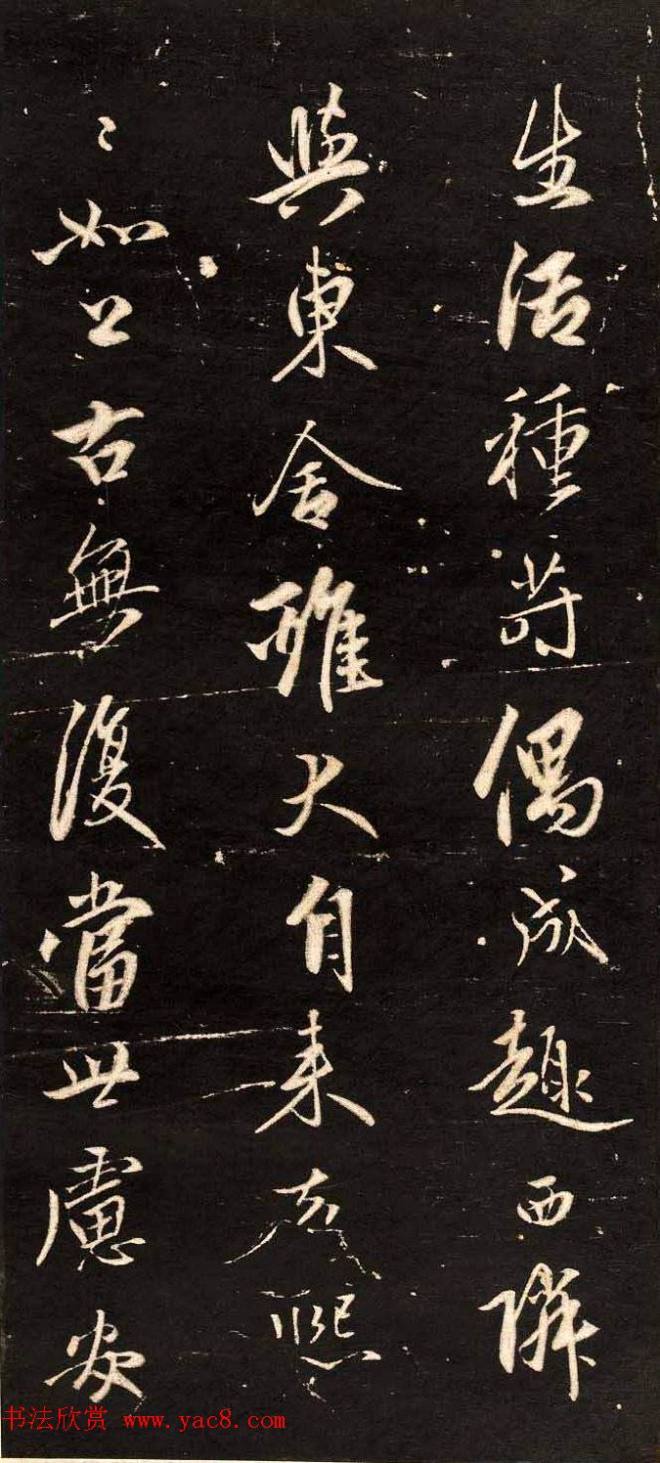 生活種蒔偶成趣西隣
與東舍雞犬自来去熙
〻如上古無復當世慮安
书法欣赏 www.yac8.com